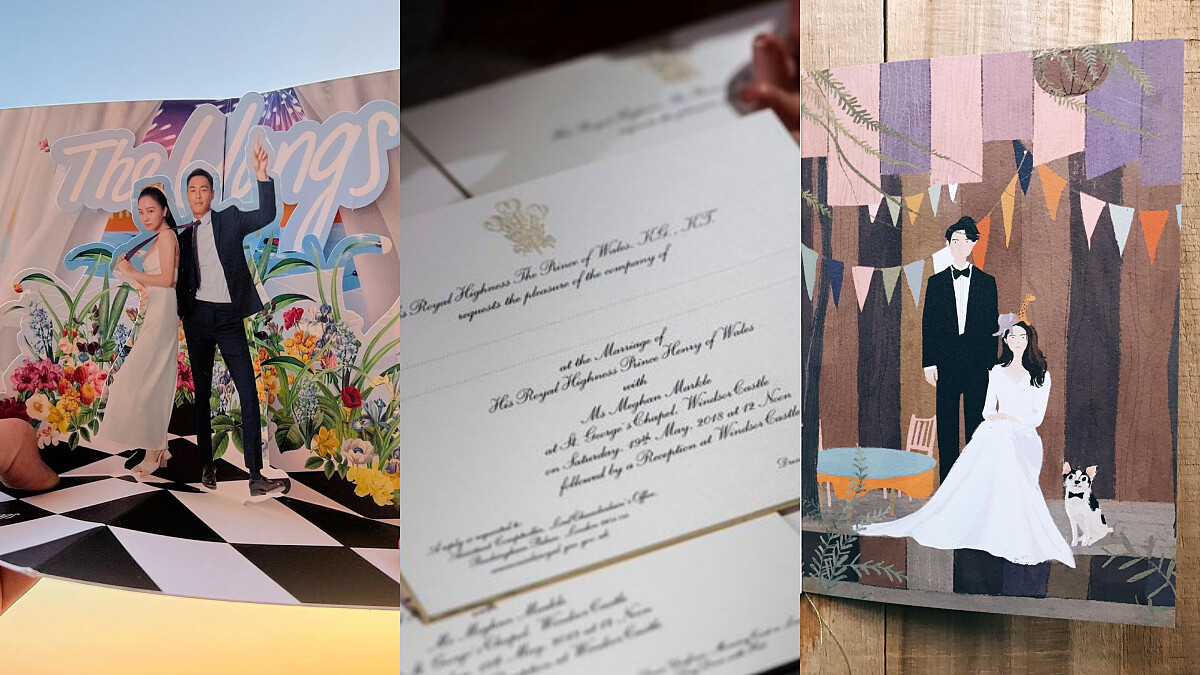 The Wangs
His Royal Highness The Prince of Wales, K.G., K.T.
requests the pleasure of the company of
at the Marriage of
His Royal Highness Prince Henry of Wales
with
Ms Meghan Markle
at St. George's Chapel, Windsor Castle
on Saturday, 19th May, 2018 at 12 Noon
followed by a Reception at Windsor Castle
A reply is requested to:
Lord Chamberlain's Office,
Buckingham Palace, London
Ms Meghan Markle
St. George's Chapel, Windsor Castle
19th May, 2018 at 12 Noon
Reception at Windsor Castle